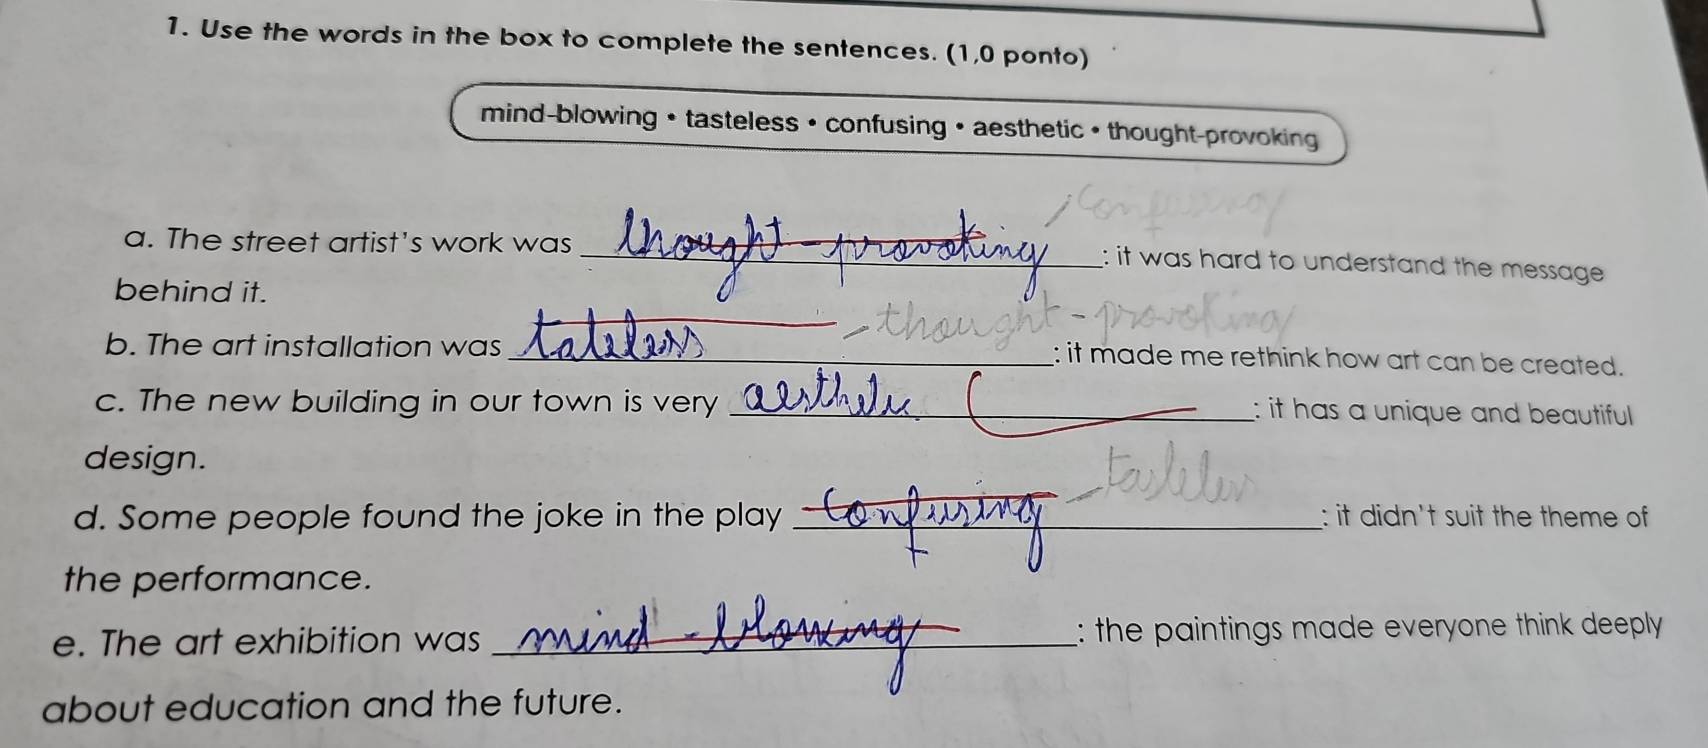 1. Use the words in the box to complete the sentences. (1,0 ponto)
mind-blowing • tasteless • confusing • aesthetic • thought-provoking
confusing
a. The street artist's work was thought-provoking : it was hard to understand the message
behind it.
- thought-provoking
b. The art installation was tateless : it made me rethink how art can be created.
c. The new building in our town is very aesthetic : it has a unique and beautiful
design.
- tasteless
d. Some people found the joke in the play confusing : it didn't suit the theme of
the performance.
e. The art exhibition was mind-blowing : the paintings made everyone think deeply
about education and the future.